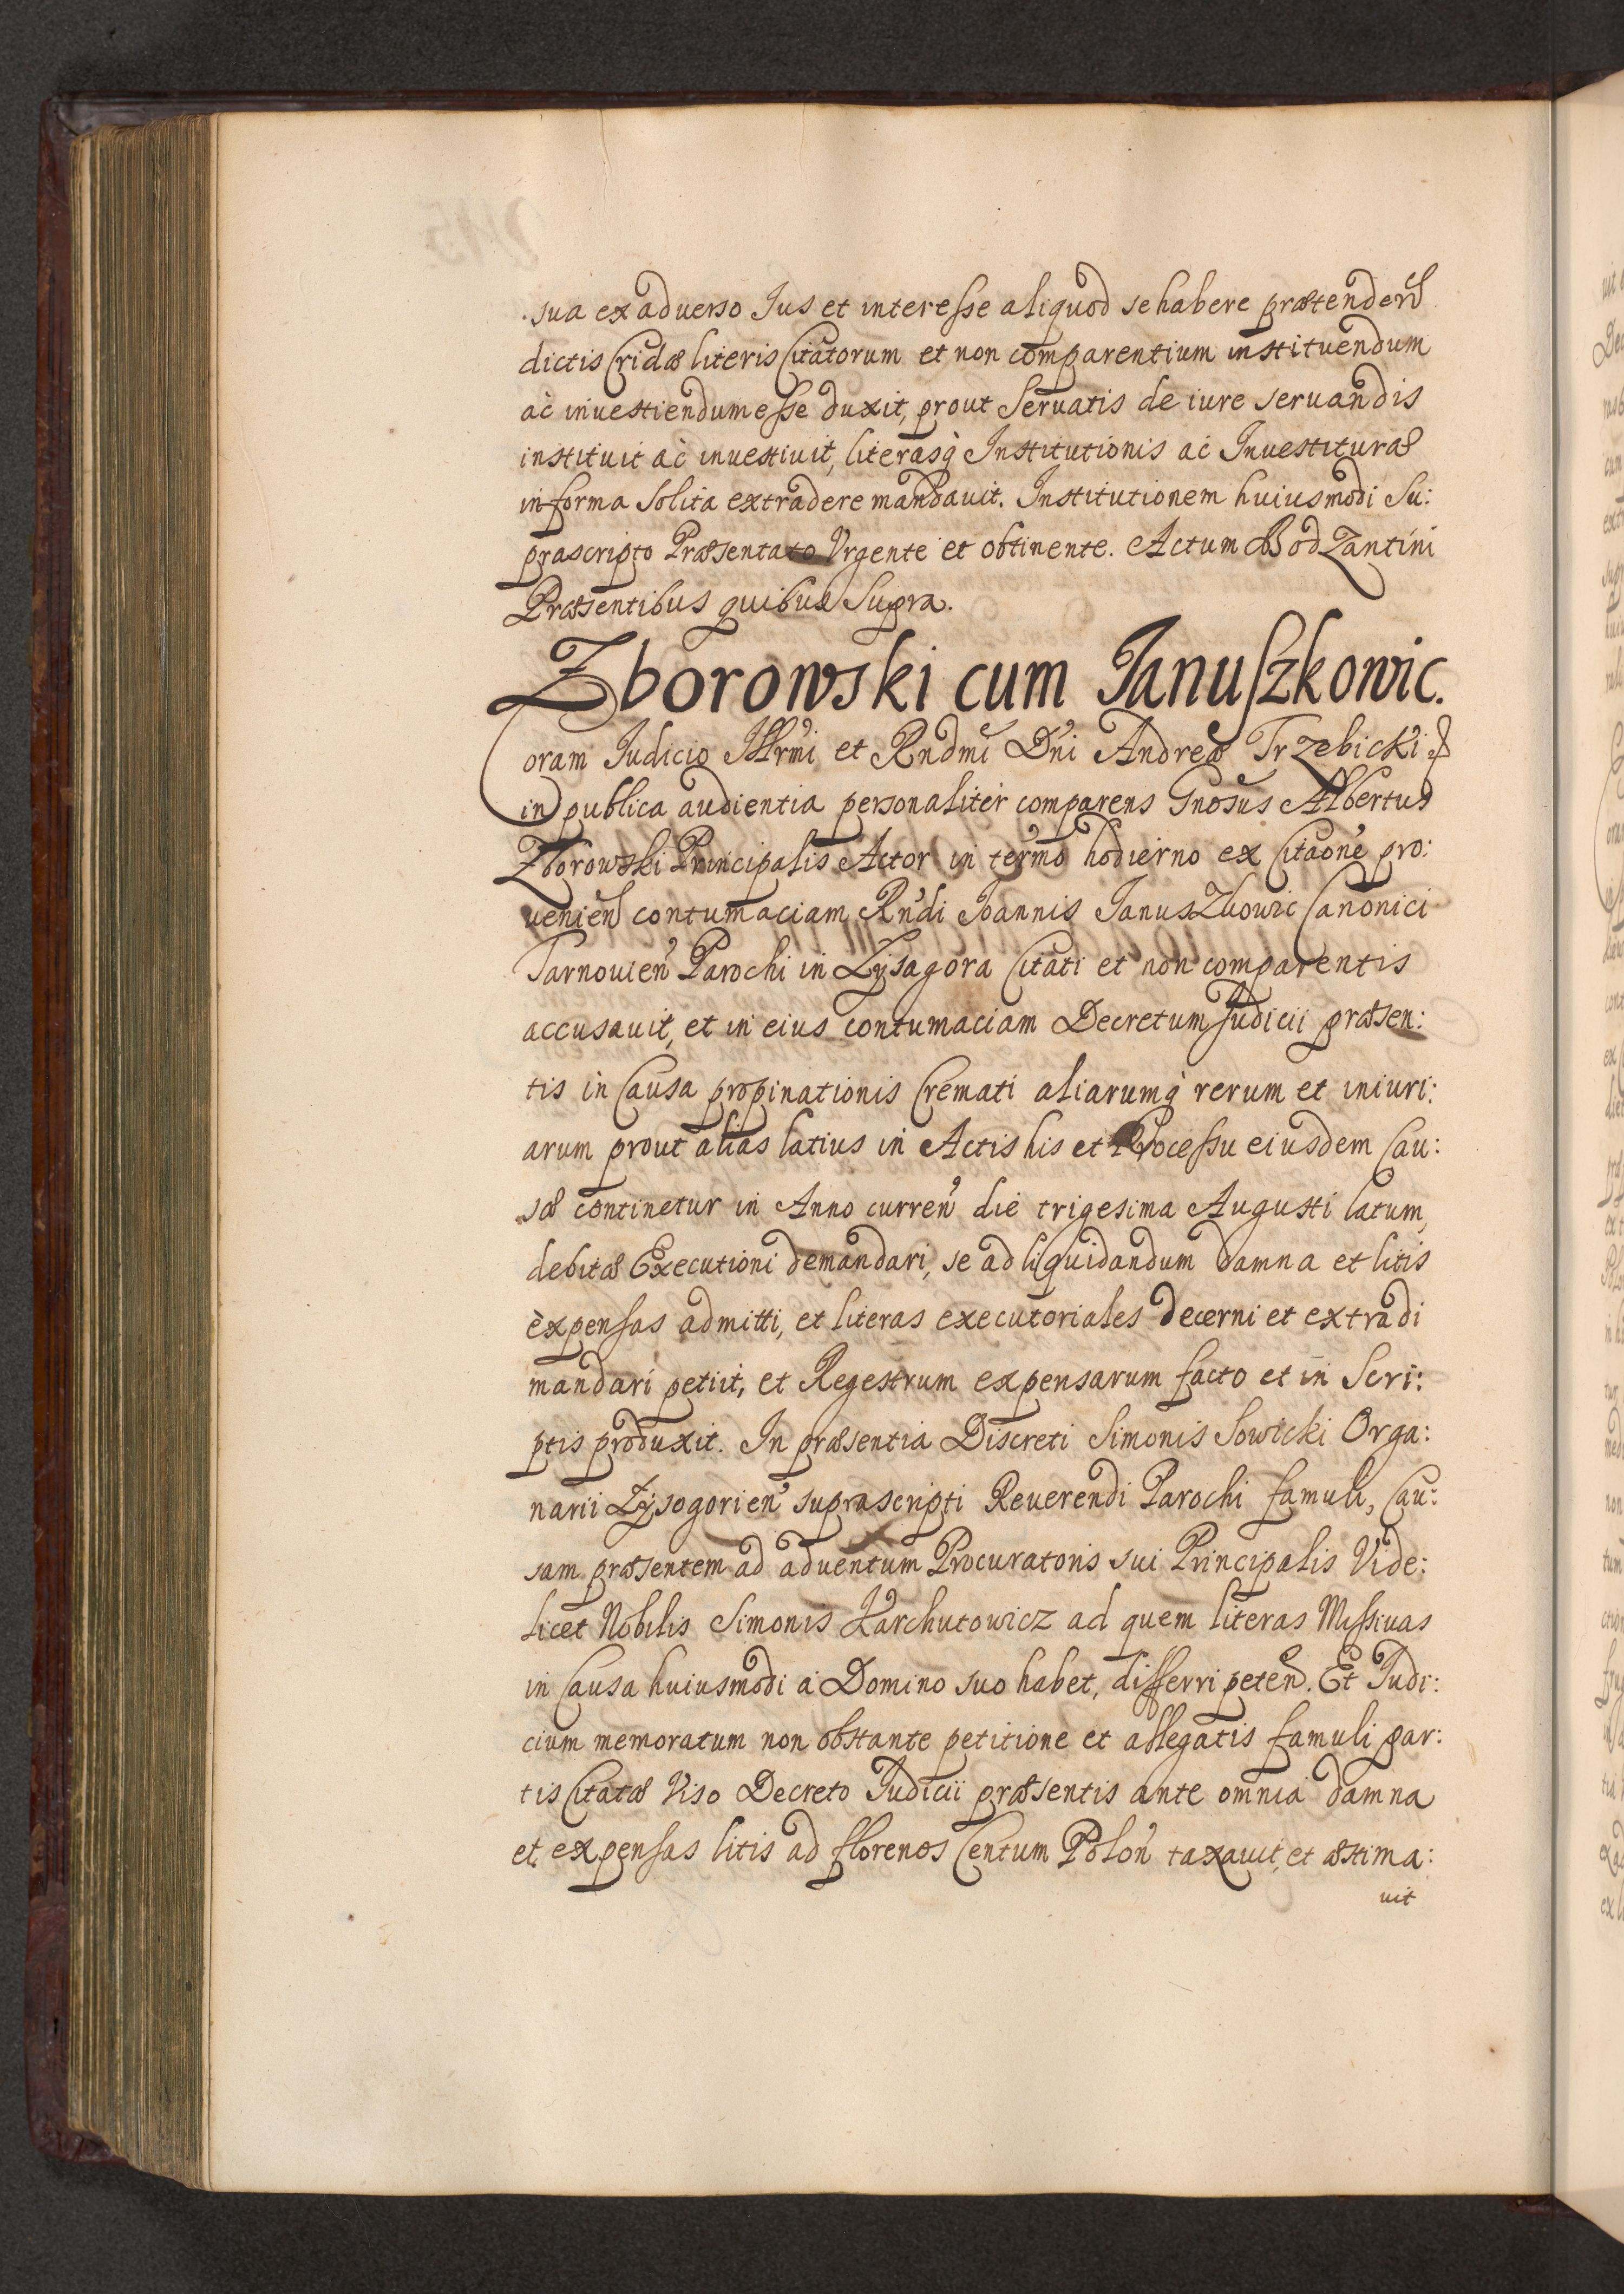 sua ex aduerso Ius et interesse aliquod se habere prætenden
dictis Cridæ literis Citatorum et non comparentium instituendum
ac inuestiendum esse duxit, prout Seruatis de iure seruandis
instituit ac inuestiuit, literasq Institutionis ac Inuestituræ
in forma Solita extradere mandauit. Institutionem huiusmodi Su:
prascripto Præsentato Vrgente et obtinente. Actum Bodzantini
Præsentibus quibus Supra.
Zborowski cum Januszkowic.
Coram Judicio Illrmi et Rndmi Dni Andreæ Trzebicki &
in publica audientia personaliter comparens Gnosus Albertus
Zborowski Principalis Actor in termo hodierno ex Citaone pro:
uenien contumaciam Rndi Joannis Januszkowic Canonici
Tarnouien Parochi in Lysagora Citati et non comparentis
accusauit, et in eius contumaciam Decretum Judicii præsen:
tis in Causa propinationis Cremati aliarumq rerum et iniuri:
arum prout alias latius in Actis his et Processu eiusdem Cau:
sæ continetur in Anno curren die trigesima Augusti latum,
debitæ Executioni demandari, se ad liquidandum damna et litis
expensas admitti, et literas executoriales decerni et extradi
mandari petiit, et Regestrum expensarum facto et in Scri:
ptis produxit. In præsentia Discreti Simonis Sowicki Orga:
narii Lysogorien suprascripti Reuerendi Parochi famuli, Cau:
sam præsentem ad aduentum Procuratoris sui Principalis Vide:
licet Nobilis Simonis Karchutowicz ad quem literas Missiuas
in Causa huiusmodi a Domino suo habet, differri peten. Et Judi:
cium memoratum non obstante petitione et allegatis famuli par:
tis Citatæ Viso Decreto Judicii præsentis ante omnia damna
et expensas litis ad florenos Centum Polon taxauit, et æstima:
uit